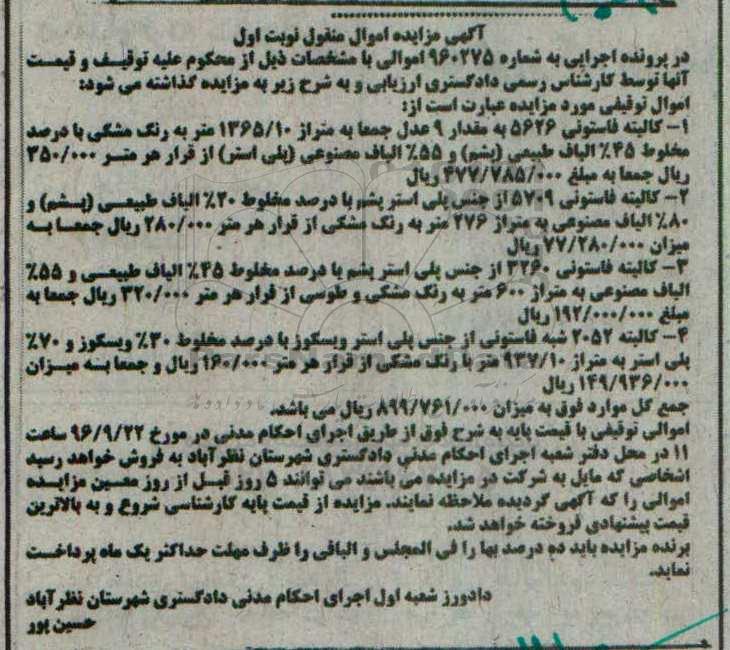 آگهی مزایده اموال منقول نوبت اول
در پرونده اجرایی به شماره ۹۶۰۲۷۵ اموالی با مشخصات ذیل از محکوم علیه توقیف و قیمت
آنها توسط کارشناس رسمی دادگستری ارزیابی و به شرح زیر به مزایده گذاشته می شود:
اموال توقیفی مورد مزایده عبارت است از:
۱- کالیته فاستونی ۵۶۲۶ به مقدار ۹ عدل جمعا به متراژ ۱۳۶۵/۱۰ متر به رنگ مشکی با درصد
مخلوط ۴۵٪ الیاف طبیعی (پشم) و ۵۵٪ الیاف مصنوعی (پلی استر) از قرار هر متر ۳۵۰/۰۰۰
ریال جمعا به مبلغ ۴۷۷/۷۸۵/۰۰۰ ریال
۲- کالیته فاستونی ۵۷۰۹ از جنس پلی استر پشم با درصد مخلوط ۲۰٪ الیاف طبیعی (پشم) و
۸۰٪ الیاف مصنوعی به متراژ ۲۷۶ متر به رنگ مشکی از قرار هر متر ۲۸۰/۰۰۰ ریال جمعا به
میزان ۷۷/۲۸۰/۰۰۰ ریال
۳- کالیته فاستونی ۳۲۶۰ از جنس پلی استر پشم با درصد مخلوط ۴۵٪ الیاف طبیعی و ۵۵٪
الیاف مصنوعی به متراژ ۶۰۰ متر به رنگ مشکی و طوسی از قرار هر متر ۳۲۰/۰۰۰ ریال جمعا به
مبلغ ۱۹۲/۰۰۰/۰۰۰ ریال
۴- کالیته ۲۰۵۲ شبه فاستونی از جنس پلی استر ویسکوز با درصد مخلوط ۳۰٪ ویسکوز و ۷۰٪
پلی استر به متراژ ۹۳۷/۱۰ متر با رنگ مشکی از قرار هر متر ۱۶۰/۰۰۰ ریال و جمعا به میزان
۱۴۹/۹۳۶/۰۰۰ ریال
جمع کل موارد فوق به میزان ۸۹۹/۷۶۱/۰۰۰ ریال می باشد.
اموالی توقیفی با قیمت پایه به شرح فوق از طریق اجرای احکام مدنی در مورخ ۹۶/۹/۲۲ ساعت
۱۱ در محل دفتر شعبه اجرای احکام مدنی دادگستری شهرستان نظرآباد به فروش خواهد رسید
اشخاصی که مایل به شرکت در مزایده می باشند می توانند ۵ روز قبل از روز معین مزایده
اموالی را که آگهی گردیده ملاحظه نمایند. مزایده از قیمت پایه کارشناسی شروع و به بالاترین
قیمت پیشنهادی فروخته خواهد شد.
برنده مزایده باید ده درصد بها را فی المجلس و الباقی را ظرف مهلت حداکثر یک ماه پرداخت
نماید.
دادورز شعبه اول اجرای احکام مدنی دادگستری شهرستان نظرآباد
حسین پور